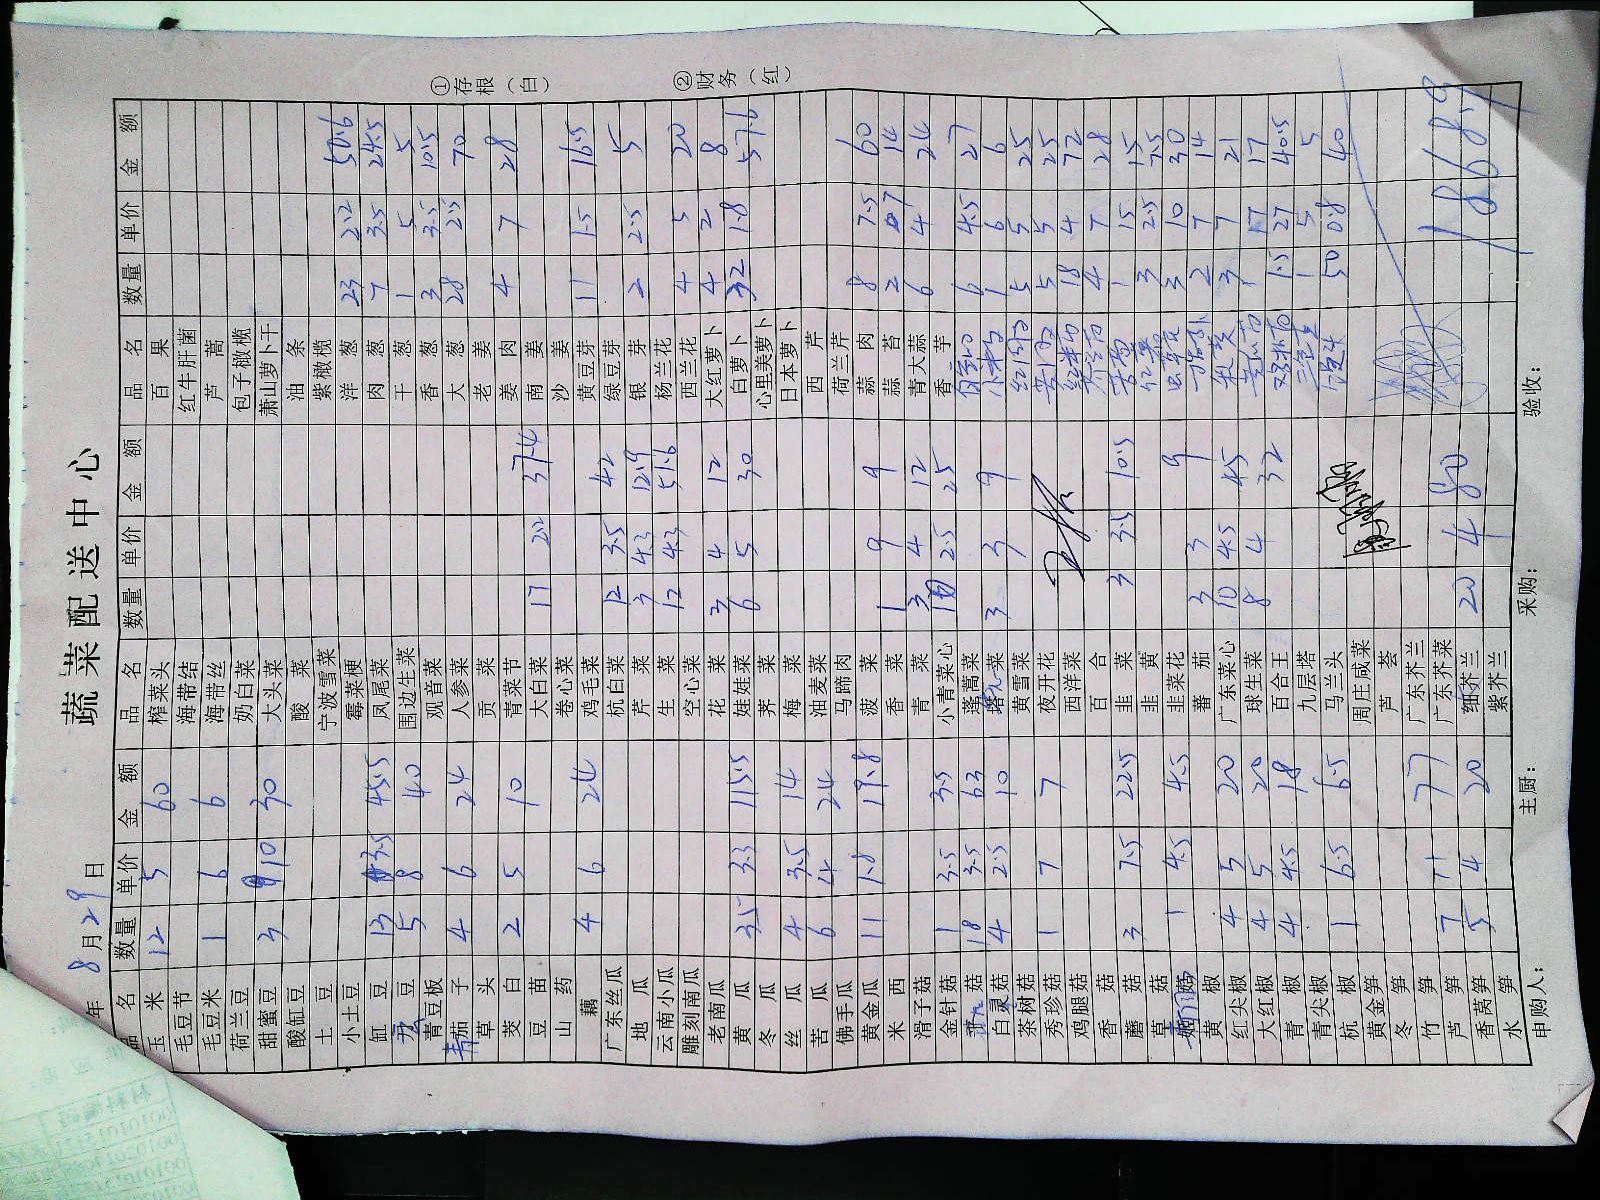 蔬菜配送中心
年 8月29日
品名 数量 单价 金额 品名 数量 单价 金额 品名 数量 单价 金额
玉米 12 5 60 榨菜头 百果
毛豆节 海带结 红牛肝菌
毛豆米 1 6 6 海带丝 芦蒿
荷兰豆 奶白菜 包子橄榄
甜蜜豆 3 10 30 大头菜 萧山萝卜干
酸缸豆 酸菜 油条
土豆 宁波雪菜 紫橄榄
小土豆 霉菜梗 洋葱 23 2.2 50.6
缸豆 13 3.5 45.5 凤尾菜 肉葱 7 3.5 24.5
豆 5 8 40 围边生菜 干葱 1 5 5
青豆板 观音菜 香葱 3 3.5 10.5
青茄子 4 6 24 人参菜 大葱 28 2.5 70
草头 贡菜 老姜
茭白 2 5 10 青菜节 姜肉 4 7 28
豆苗 大白菜 17 2.2 37.4 南姜
山药 卷心菜 沙姜
藕 4 6 24 鸡毛菜 黄豆芽 11 1.5 16.5
广东丝瓜 杭白菜 12 3.5 42 绿豆芽
地瓜 芹菜 3 4.3 12.9 银芽 2 2.5 5
云南小瓜 生菜 12 4.3 51.6 杨兰花
雕刻南瓜 空心菜 西兰花 4 5 20
老南瓜 花菜 3 4 12 大红萝卜 4 2 8
黄瓜 35 3.3 115.5 娃娃菜 6 5 30 白萝卜 32 1.8 57.6
冬瓜 荠菜 心里美萝卜
丝瓜 4 3.5 14 梅菜 日本萝卜
苦瓜 6 4 24 油麦菜 西芹
佛手瓜 马蹄肉 荷兰芹
黄金瓜 11 1.8 19.8 菠菜 蒜肉 8 7.5 60
米西 香菜 1 9 9 蒜苔 2 7 14
滑子菇 青菜 3 4 12 青大蒜 6 4 24
金针菇 1 3.5 3.5 小青菜心 10 2.5 25 香芋
菇 18 3.5 63 蓬蒿菜 6 4.5 27
白灵菇 4 2.5 10 菜 3 3 9 小米 1 6 6
茶树菇 黄雪菜 5 5 25
秀珍菇 1 7 7 夜开花 5 5 25
鸡腿菇 西洋菜 18 4 72
香菇 百合 4 7 28
蘑菇 3 7.5 22.5 韭菜 3 3.5 10.5 1 15 15
草菇 韭黄 3 2.5 7.5
菇 1 4.5 4.5 韭菜花 3 10 30
黄椒 蕃茄 3 3 9 2 7 14
红尖椒 4 5 20 广东菜心 10 4.5 45 3 7 21
大红椒 4 5 20 球生菜 8 4 32 1 17 17
青椒 4 4.5 18 百合王 1.5 27 40.5
青尖椒 九层塔 1 5 5
杭椒 1 6.5 6.5 马兰头 50 0.8 40
黄金笋 周庄咸菜
冬笋 芦荟
竹笋 广东芥兰
芦笋 7 11 77 广东芥菜
香莴笋 5 4 20 细芥兰 20 4 80
水笋 紫芥兰
1868.9
申购人： 主厨： 采购： 验收：
①存根（白）
②财务（红）